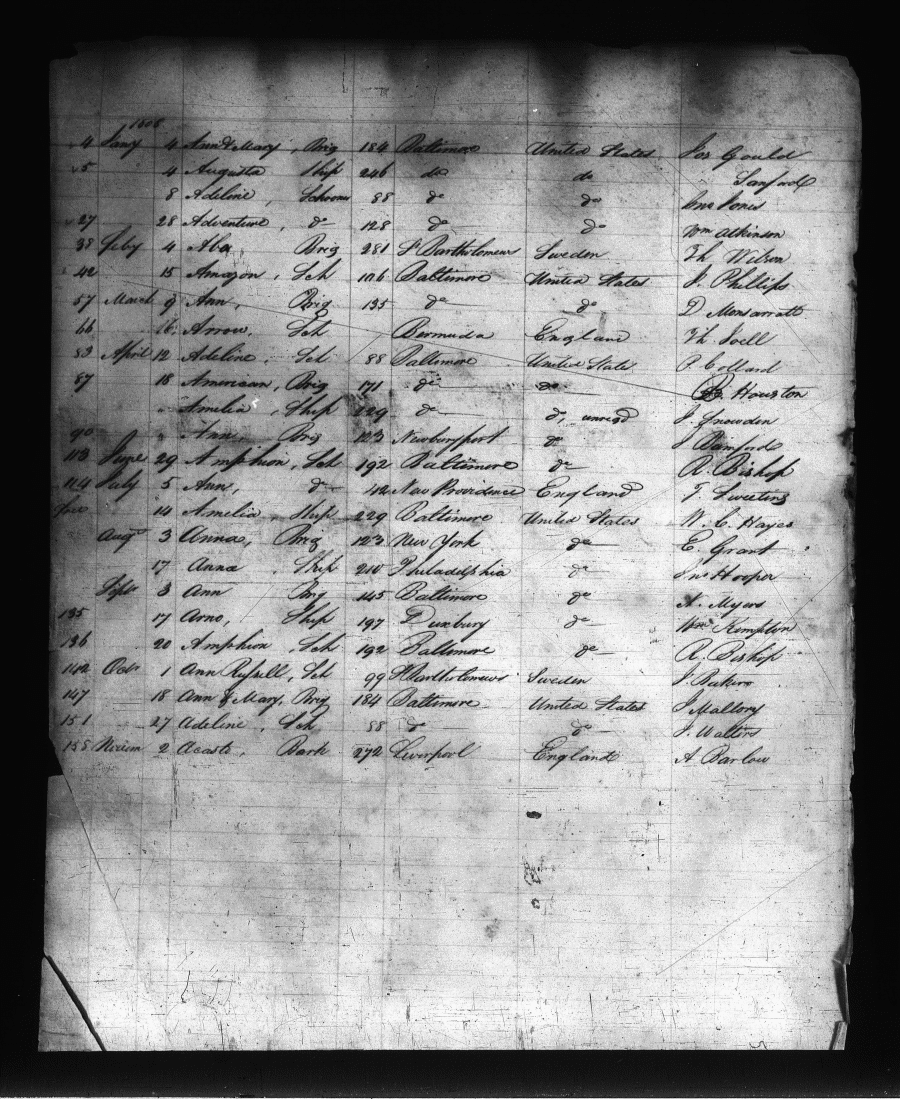 4 Jany 4 Ann & Mary, Brig 184 Baltimore United States Jos Gould
5 4 Augusta Ship 246 do do Sanford
8 Adeline, Schooner 88 do do Jno Jones
27 28 Adventure, do 128 do do Wm Atkinson
38 Feby 4 Aba Brig 281 St Bartholomews Sweden Th Wilson
42 15 Amazon, Sch 106 Baltimore United States J. Phillips
57 March 9 Ann, Brig 135 do do D Monsarratt
66 16 Arrow, Sch Bermuda England Th.
83 April 12 Adeline, Sch 88 Baltimore United State P. Collard
87 18 American, Brig 171 do do Houston
" Amelia, Ship 229 do do, unregd J. Snowden
90 " Ann, Brig 123 Newburyport do J Bamford
113 June 29 Amphion, Sch 192 Baltimore do R. Bishop
114 July 5 Ann, do 42 New Providence England J. Sweeting
14 Amelia, Ship 229 Baltimore United States W. C. Hayes
Augt 3 Anna, Brig 123 New York do E. Grant
17 Anna, Ship 210 Philadelphia do Jno Hooper
Sepr 3 Ann Brig 145 Baltimore do A. Myers
135 17 Arno, Ship 197 Duxbury do Kempton
136 20 Amphion, Sch 192 Baltimore do R. Bishop
142 Octr 1 Ann Russell, Sch 99 St Bartholomews Sweden J.
147 18 Ann & Mary, Brig 184 Baltimore United States J Mallory
151 27 Adeline, Sch 88 do do J. Walters
158 2 Acasto, Bark 272 Liverpool England A Barlow